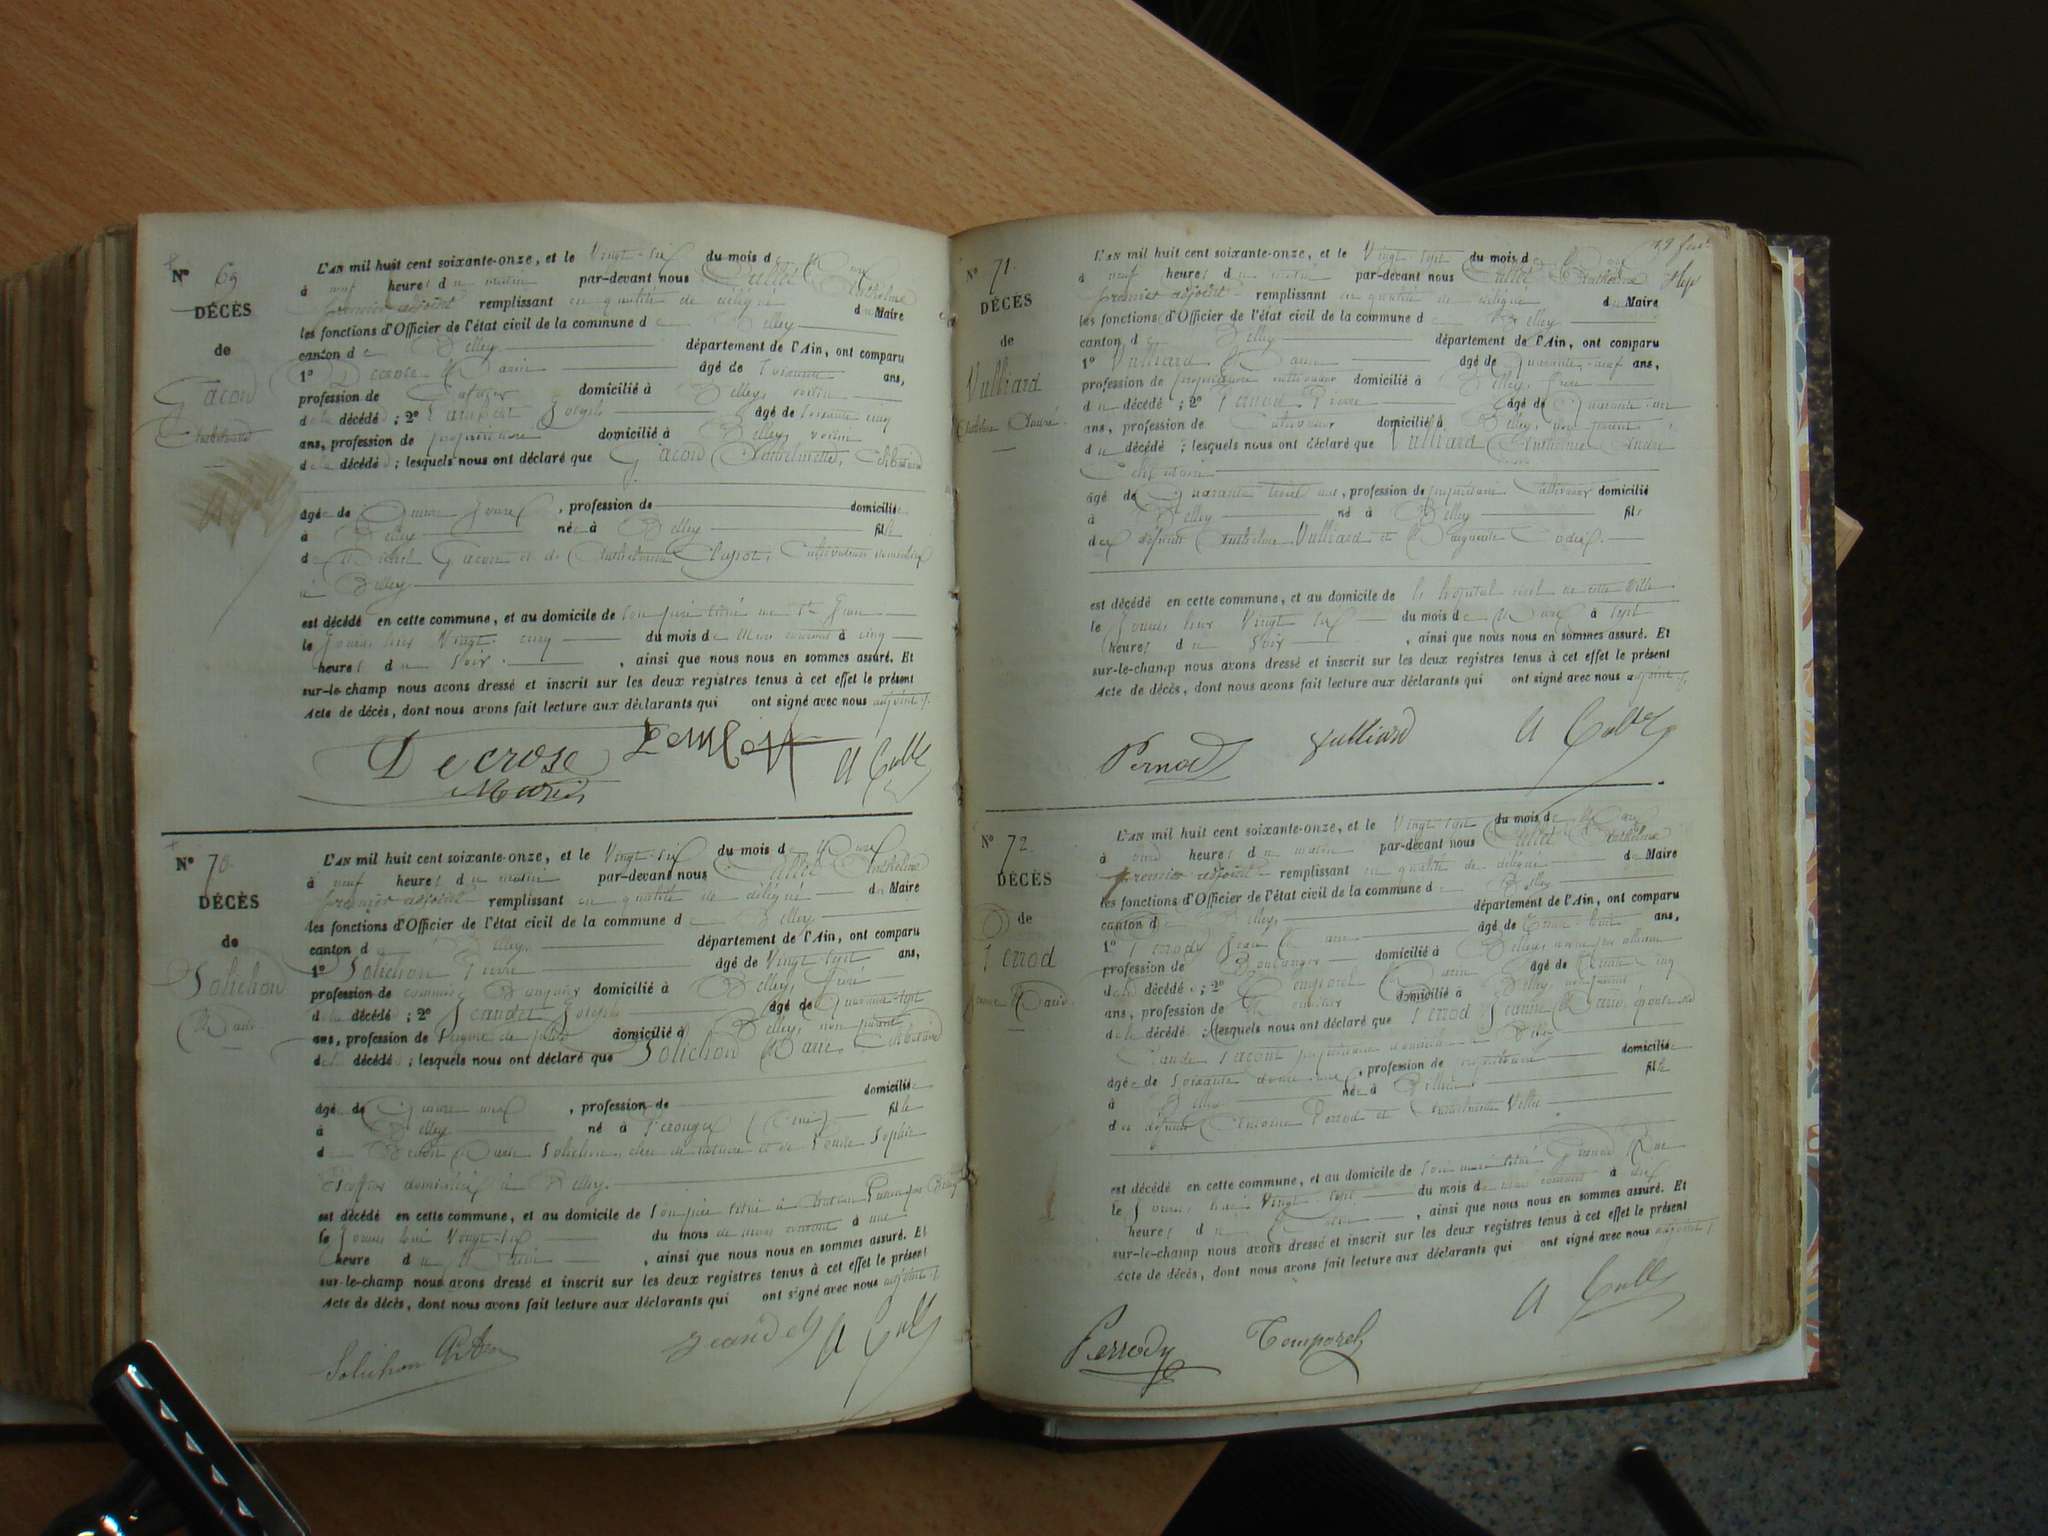 N° 69
DÉCÈS
de
Gacon
L'AN mil huit cent soixante-onze, et le Vingt-six du mois de Mars
à neuf heures du matin par-devant nous Anthelme
premier adjoint remplissant en qualité de délégué du Maire
les fonctions d'Officier de l'état civil de la commune de Belley
canton de Belley département de l'Ain, ont comparu
1° Decrose Marin âgé de ans,
profession de domicilié à Belley, voisin
de la décédée ; 2° Joseph âgé de soixante cinq
ans, profession de propriétaire domicilié à Belley, voisin
de la décédée ; lesquels nous ont déclaré que Gacon Anthelmette, Célibataire
âgée de Quinze jours, profession de domiciliée
à Belley née à Belley fille
de Gacon et de Cultivateurs domiciliés
à Belley
est décédée en cette commune, et au domicile de son père situé
le jour hier Vingt-cinq du mois de Mars courant à cinq
heures du soir, ainsi que nous nous en sommes assuré. Et
sur-le-champ nous avons dressé et inscrit sur les deux registres tenus à cet effet le présent
Acte de décès, dont nous avons fait lecture aux déclarants qui ont signé avec nous adjoint.
Decrose
Marin
N° 70
DÉCÈS
de
Solichon
Marie
L'AN mil huit cent soixante-onze, et le Vingt-six du mois de Mars
à neuf heures du matin par-devant nous Anthelme
premier adjoint remplissant en qualité de délégué du Maire
les fonctions d'Officier de l'état civil de la commune de Belley
canton de Belley département de l'Ain, ont comparu
1° Solichon Pierre âgé de Vingt sept ans,
profession de domicilié à Belley, frère
de la décédée ; 2° Jeandet Joseph âgé de Quarante sept
ans, profession de domicilié à Belley, non parent
de la décédée ; lesquels nous ont déclaré que Solichon Marie, Célibataire
âgée de Quinze ans, profession de domiciliée
à Belley né à Pérouges (Ain) fille
de Marie Solichon, clerc de notaire et de Sophie
domiciliés à Belley
est décédé en cette commune, et au domicile de son père situé à
le jour Vingt-six du mois de mars courant à une
heure du matin, ainsi que nous nous en sommes assuré. Et
sur-le-champ nous avons dressé et inscrit sur les deux registres tenus à cet effet le présent
Acte de décès, dont nous avons fait lecture aux déclarants qui ont signé avec nous adjoint.
Solichon
Jeandet
N° 71
DÉCÈS
de
Vulliard
Anthelme André
L'AN mil huit cent soixante-onze, et le Vingt-sept du mois de Mars
à neuf heures du matin par-devant nous Anthelme
premier adjoint remplissant en qualité de délégué du Maire
les fonctions d'Officier de l'état civil de la commune de Belley
canton de Belley département de l'Ain, ont comparu
1° Vulliard Marin âgé de Quarante-neuf ans,
profession de propriétaire cultivateur domicilié à Belley, frère
du décédé ; 2° Pierre âgé de Quarante
ans, profession de Cultivateur domicilié à Belley, non parent
du décédé ; lesquels nous ont déclaré que Vulliard Anthelme André
Célibataire
âgé de Quarante trois ans, profession de propriétaire Cultivateur domicilié
à Belley né à Belley fils
des défunts Anthelme Vulliard et Marguerite
est décédé en cette commune, et au domicile de l'hôpital civil de cette ville
le jour hier Vingt six du mois de Mars à sept
heures du soir, ainsi que nous nous en sommes assuré. Et
sur-le-champ nous avons dressé et inscrit sur les deux registres tenus à cet effet le présent
Acte de décès, dont nous avons fait lecture aux déclarants qui ont signé avec nous adjoint.
Vulliard
N° 72
DÉCÈS
de
Perrod
Jeanne Marie
L'AN mil huit cent soixante-onze, et le Vingt-sept du mois de Mars
à heures du matin par-devant nous Anthelme
premier adjoint remplissant en qualité de délégué du Maire
les fonctions d'Officier de l'état civil de la commune de Belley
canton de Belley, département de l'Ain, ont comparu
1° Perrod Jean Marie âgé de Trente-huit ans,
profession de Boulanger domicilié à Belley,
de la décédée ; 2° Temporel Marin âgé de Trente cinq
ans, profession de domicilié à Belley, non parent
de la décédée ; lesquels nous ont déclaré que Perrod Jeanne Marie, épouse de
Claude propriétaire domicilié à Belley
âgée de soixante douze ans, profession de domiciliée
à Belley née à fille
de défunts Antoine Perrod et Anthelmette
est décédé en cette commune, et au domicile de son mari situé Grande Rue
le jour Vingt-sept du mois de mars courant à
heures du matin, ainsi que nous nous en sommes assuré. Et
sur-le-champ nous avons dressé et inscrit sur les deux registres tenus à cet effet le présent
Acte de décès, dont nous avons fait lecture aux déclarants qui ont signé avec nous adjoint.
Temporel